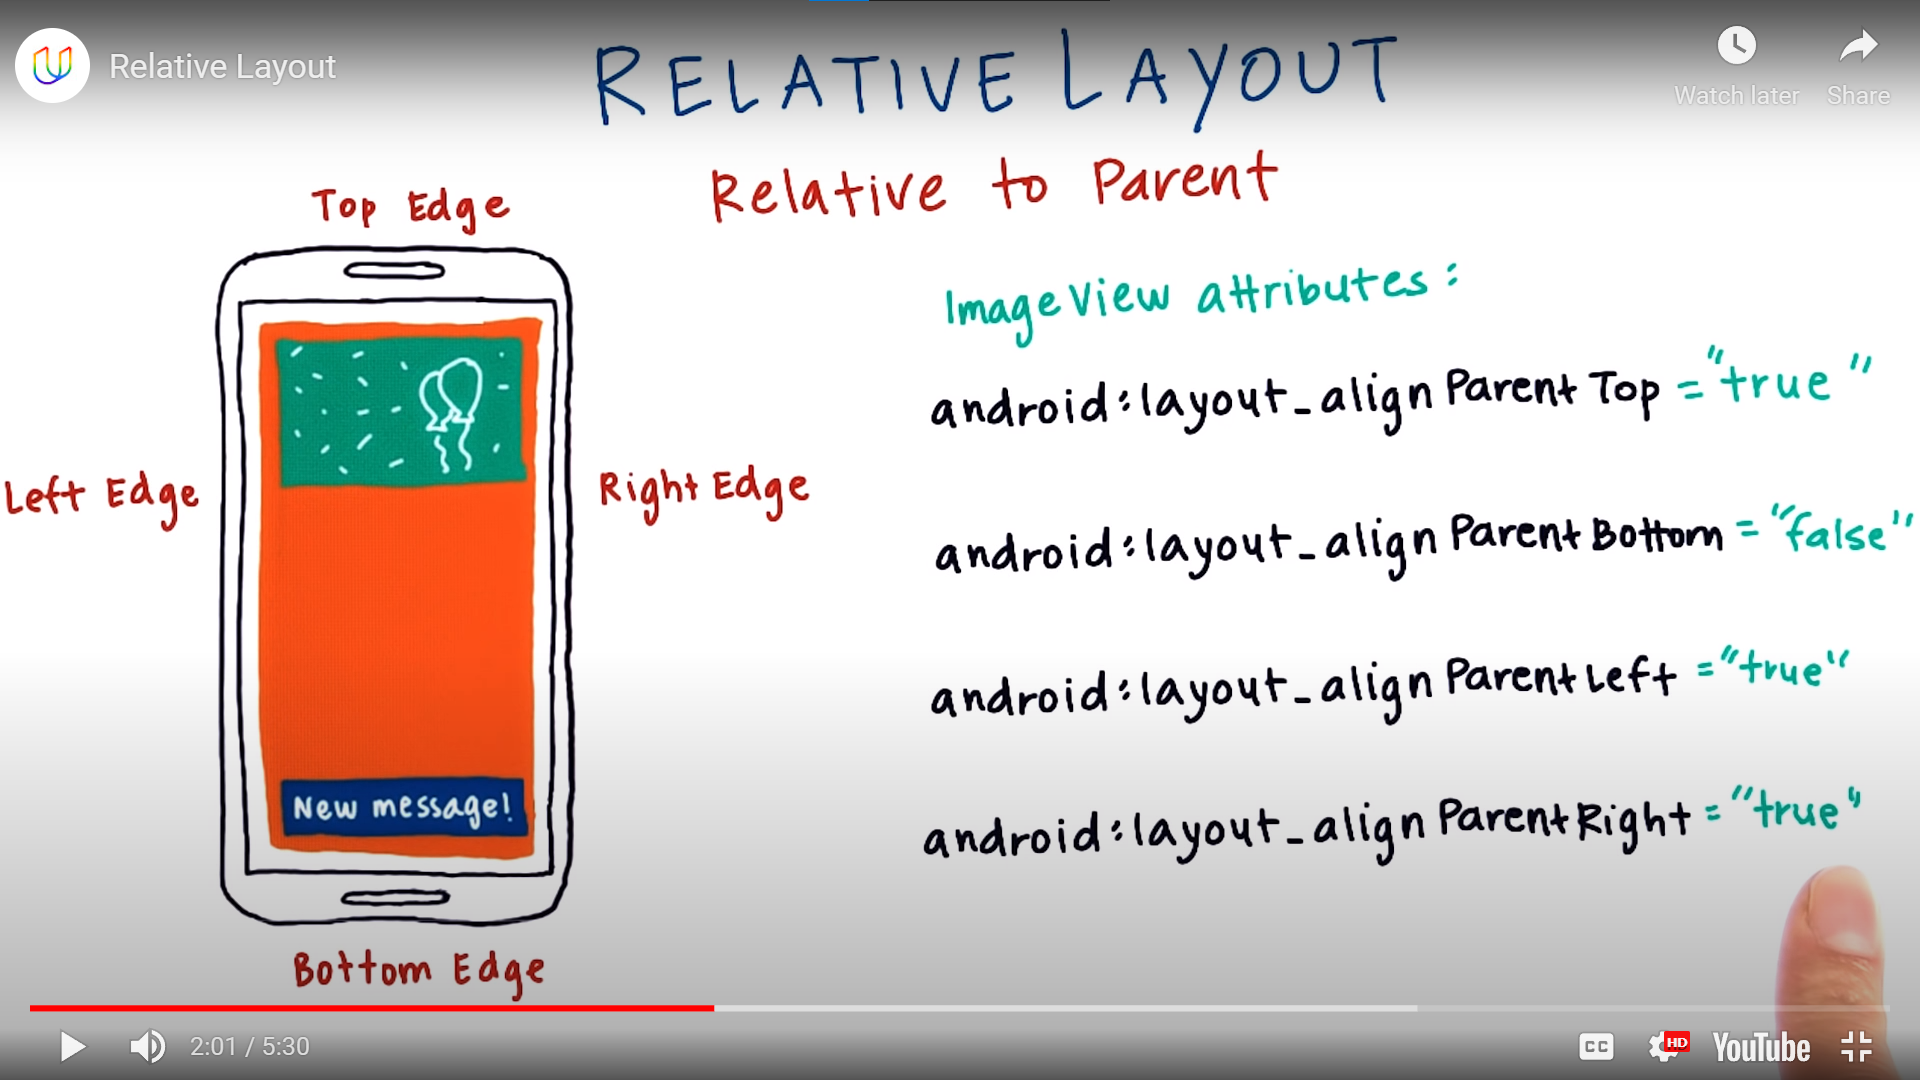 Relative Layout
RELATIVE LAYOUT
Watch later
Share
Relative to Parent
Top Edge
Left Edge
Right Edge
New message!
Bottom Edge
ImageView attributes:
android:layout_alignParentTop="true"
android:layout_alignParentBottom="false"
android:layout_alignParentLeft="true"
android:layout_alignParentRight="true"
2:01 / 5:30
CC
HD
YouTube